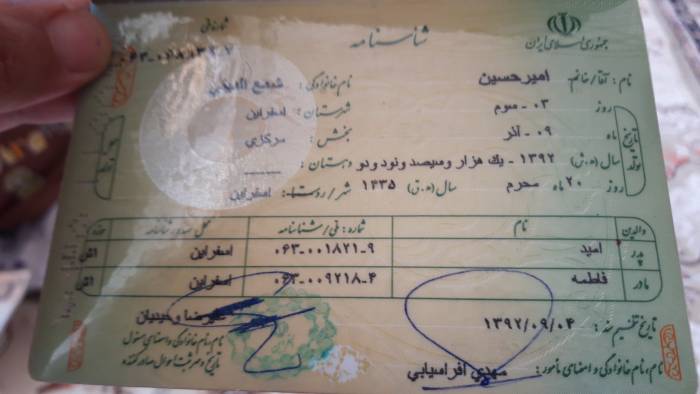 جمهوری اسلامی ایران
شناسنامه
شماره ملی
نام: آقا/خانم امیرحسین نام خانوادگی:
تاریخ تولد
روز ۰۳ - سوم شهرستان: اسفراین
ماه ۰۹ - آذر بخش: مرکزی
سال (ه.ش) ۱۳۹۲ - یک هزار و سیصد و نود و دو دهستان: -----
روز ۲۰ ماه محرم سال (ه.ق) ۱۴۳۵ شهر/روستا: اسفراین
والدین نام شماره: ملی/شناسنامه محل صدور شناسنامه حوزه
پدر امید ۰۶۳-۰۰۱۸۲۱-۹ اسفراین
مادر فاطمه ۰۶۳-۰۰۹۲۱۸-۴ اسفراین
تاریخ تنظیم سند: ۱۳۹۲/۰۹/۰۴ علیرضا وحیدیان
نام، نام خانوادگی و امضای مأمور: مهدی افراسیابی
نام، نام خانوادگی و امضای مسئول
تاریخ و مهر ثبت احوال صادرکننده